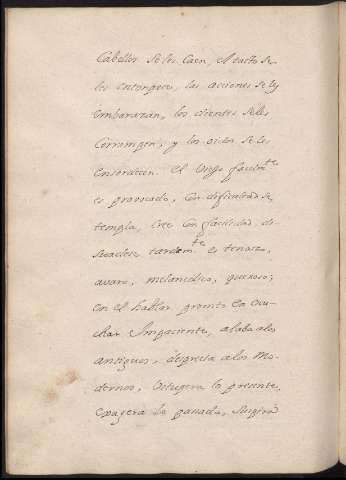 Cabellos se les Caen, el tacto se
les entorpece, las acciones se les
embarazan, los dientes se les
Corrompen, y los oidos se les
Ensordecen. el Viejo facilm.te
es provocado, Con dificultad se
templa, Cree Con facilidad, de-
secreese tardem.te es tenaz,
avaro, melancolico, quexoso;
en el hablar promto en escu-
char Impaciente, alaba alos
Antiguos, desprecia alos Mo-
dernos, Vitupera lo presente,
Exagera lo pasado, Suspira